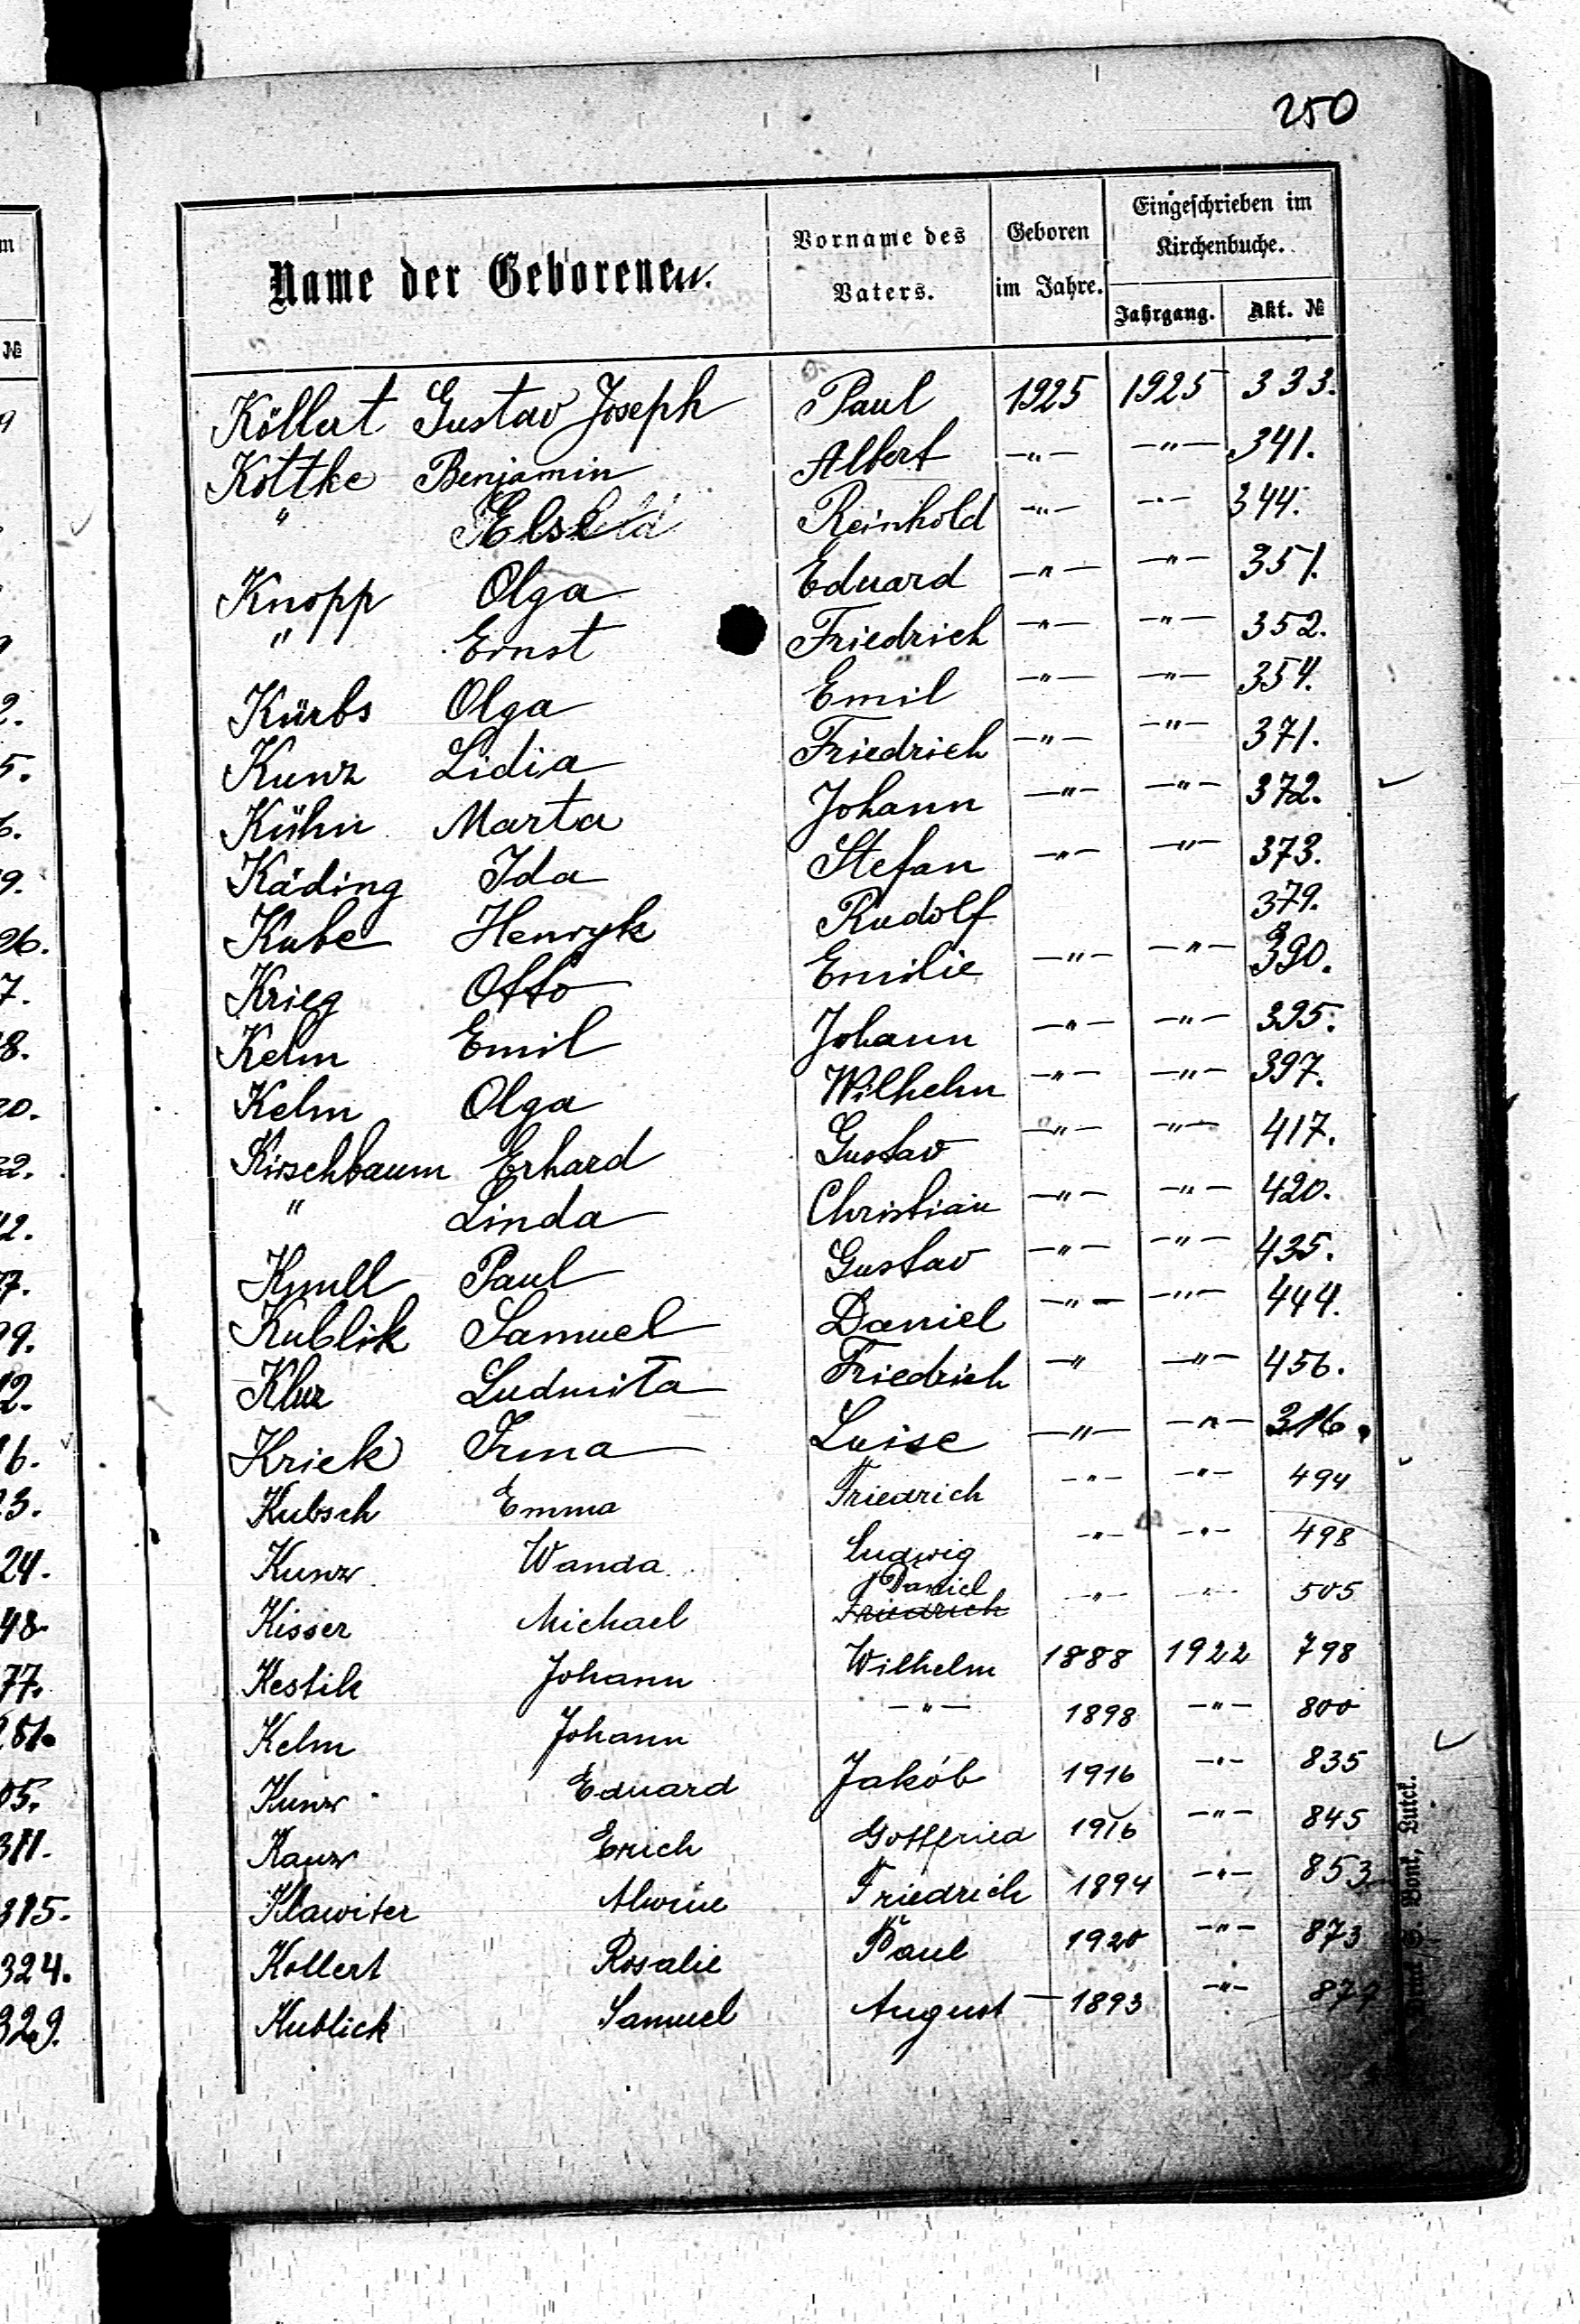 250
Name der Geborenen. Vorname des Vaters. Geboren im Jahre. Eingeschrieben im Kirchenbuche. Jahrgang. Akt. №
Köllert Gustav Joseph Paul 1925 1925 333.
Kottke Benjamin Albert —"— —"— 341.
" Reinhold —"— —"— 344.
Knopp Olga Eduard —"— —"— 351.
" Ernst Friedrich —"— —"— 352.
Kürbs Olga Emil —"— —"— 354.
Kunz Lidia Friedrich —"— —"— 371.
Kühn Marta Johann —"— —"— 372.
Käding Ida Stefan —"— —"— 373.
Kube Henryk Rudolf 379.
Krieg Otto Emilie —"— —"— 390.
Kelm Emil Johann —"— —"— 395.
Kelm Olga Wilhelm —"— —"— 397.
Kirschbaum Erhard Gustav —"— —"— 417.
" Linda Christian —"— —"— 420.
Paul Gustav —"— —"— 435.
Kublik Samuel Daniel —"— —"— 444.
Ludmiła Friedrich —" —"— 456.
Kriek Irma Luise —"— —"— 316.
Kubsch Emma Friedrich —"— —"— 494
Kunz Wanda Ludwig —"— —"— 498
Kisser Michael Daniel Friedrich —"— —"— 505
Kestik Johann Wilhelm 1888 1922 798
Kelm Johann —"— 1898 —"— 800
Kunz Eduard Jakób 1916 —"— 835
Kanz Erich Gottfried 1916 —"— 845
Klawiter Alwine Friedrich 1894 —"— 853
Kollert Rosalie Paul 1920 —"— 873
Kublick Samuel August — 1893 —"—